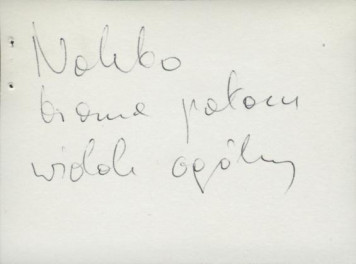 Nakło
brama pałacu
widok ogólny